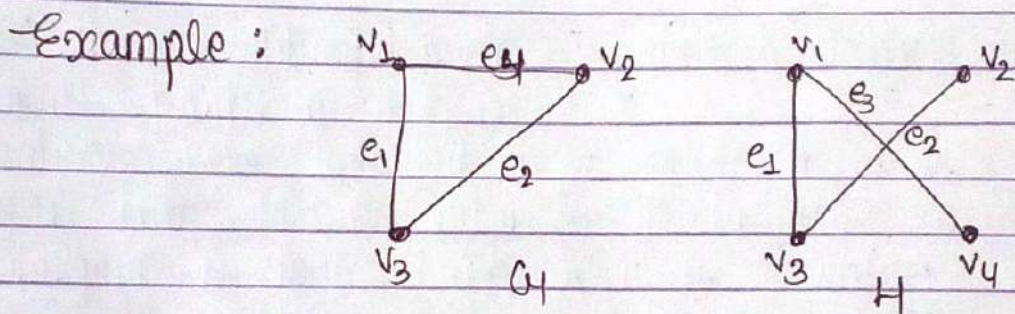 Example :
v1 e4 v2
e1 e2
v3
G
v1 v2
e3
e1 e2
v3 v4
H